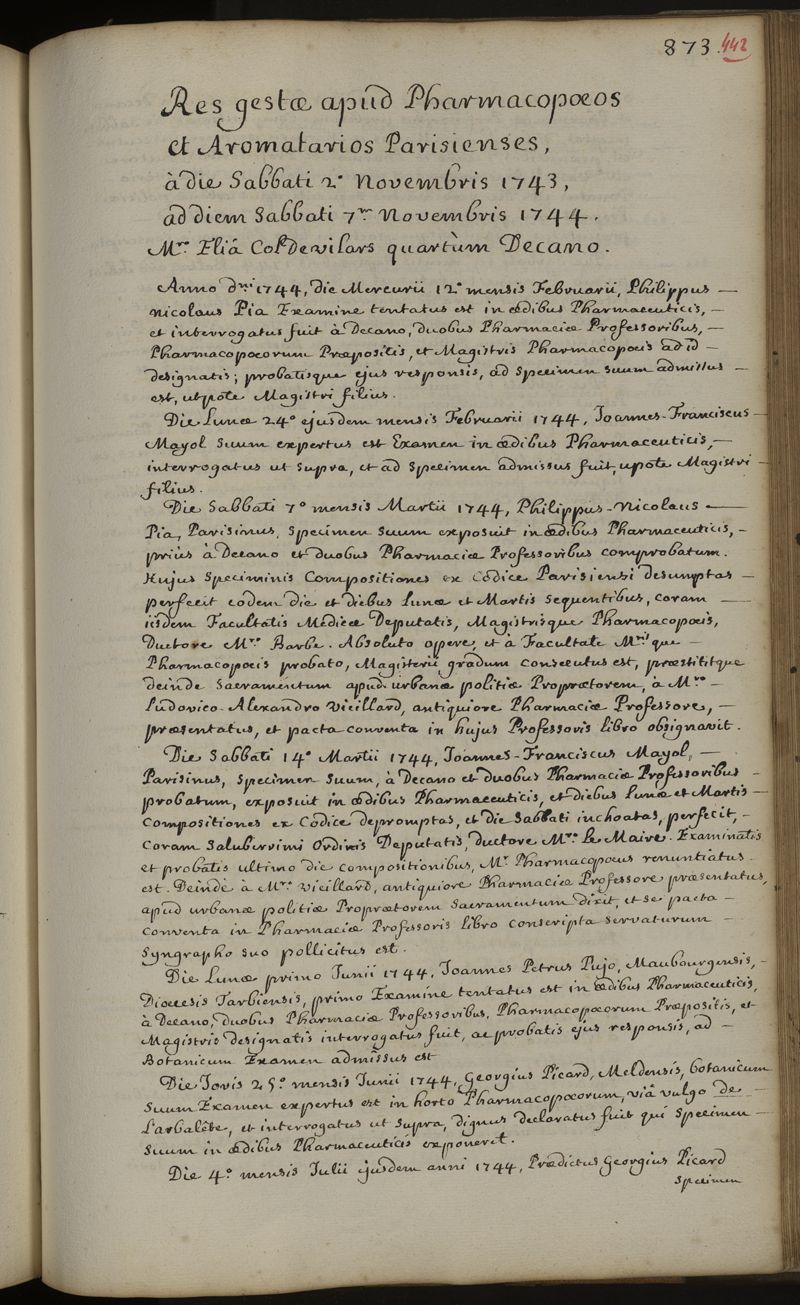 873. 442
Res gestæ apud Pharmacopœos
et Aromatarios Parisienses,
à die Sabbati 2ª Novembris 1743,
ad diem Sabbati 7ᵐ Novembris 1744.
Mʳᵒ Eliâ Col de vilars quartùm Decano.
Anno dⁿⁱ 1744, die Mercurii 12ª mensis Februarii, Philippus —
Nicolaus Pia Examine tentatus est in ædibus Pharmaceuticis, —
et interrogatus fuit à Decano, duobus Pharmaciæ Professoribus, —
Pharmacopœorum Præpositis, et Magistris Pharmacopœis ad id —
designatis; probatisque ejus responsis, ad specimen suum admissus —
est, utpote Magistri filius.
Die Lunæ 24º ejusdem mensis Februarii 1744, Joannes-Franciscus —
Mayol suum expertus est Examen in ædibus Pharmaceuticis, —
interrogatus ut supra, et ad specimen admissus fuit, upote Magistri —
filius.
Die Sabbati 7º mensis Martii 1744, Philippus-Nicolaus —
Pia, Parisinus, specimen suum exposuit in ædibus Pharmaceuticis, —
priùs à Decano et duobus Pharmaciæ Professoribus comprobatum.
Hujus speciminis Compositiones ex Codice Parisiensi desumptas —
perfecit eodem die et diebus Lunæ et Martis sequentibus, coram —
iisdem Facultatis Medicæ Deputatis, Magistrisque Pharmacopœis,
Ductore Mʳᵒ Barbe. Absoluto opere, et à Facultate Mʳⁱˢque —
Pharmacopœis probato, Magisterii gradum consecutus est, præstititque
deinde Sacramentum apud urbanæ politiæ Proprætorem, à Mʳᵒ —
Ludovico-Alexandro Vieillard, antiquiore Pharmaciæ Professore, —
præsentatus, et pacta conventa in hujus Professoris libro obsignavit.
Die Sabbati 14ª Martii 1744, Joannes-Franciscus Mayol, —
Parisinus, specimen suum, à Decano et duobus Pharmaciæ Professoribus —
probatum, exposuit in ædibus Pharmaceuticis, et diebus Lunæ et Martis —
Compositiones ex Codice depromptas, et die Sabbati inchoatas, perfecit, —
Coram Saluberrimi Ordinis Deputatis, ductore Mʳᵒ Le Maire. Examinatis
et probatis ultimo die compositionibus, Mʳ Pharmacopœus renuntiatus —
est. Deinde à Mʳᵒ Vieillard, antiquiore Pharmaciæ Professore præsentatus,
apud urbanæ politiæ Proprætorem Sacramentum dixit, et se pacta —
Conventa in Pharmaciæ Professoris libro conscripta servaturum —
Syngrapho suo pollicitus est.
Die Lunæ primo Junii 1744, Joannes Petrus Pujo, Maubourgensis, —
Diœcesis Tarbiensis, primo Examine tentatus est in ædibus Pharmaceuticis,
à Decano, duobus Pharmaciæ Professoribus, Pharmacopœorum Præpositis, et
Magistris designatis interrogatus fuit, ac probatis ejus responsis, ad —
Botanicum Examen admissus est
Die Jovis 25º mensis Junii 1744, Georgius Picard, Meldensis, botanicum
suum Examen expertus est in horto Pharmacopœorum, viâ vulgo de —
L'arbalête, et interrogatus ut supra, dignus declaratus fuit qui specimen —
suum in ædibus Pharmaceuticis exponeret.
Die 4º mensis Julii ejusdem anni 1744, Prædictus Georgius Picard
specimen